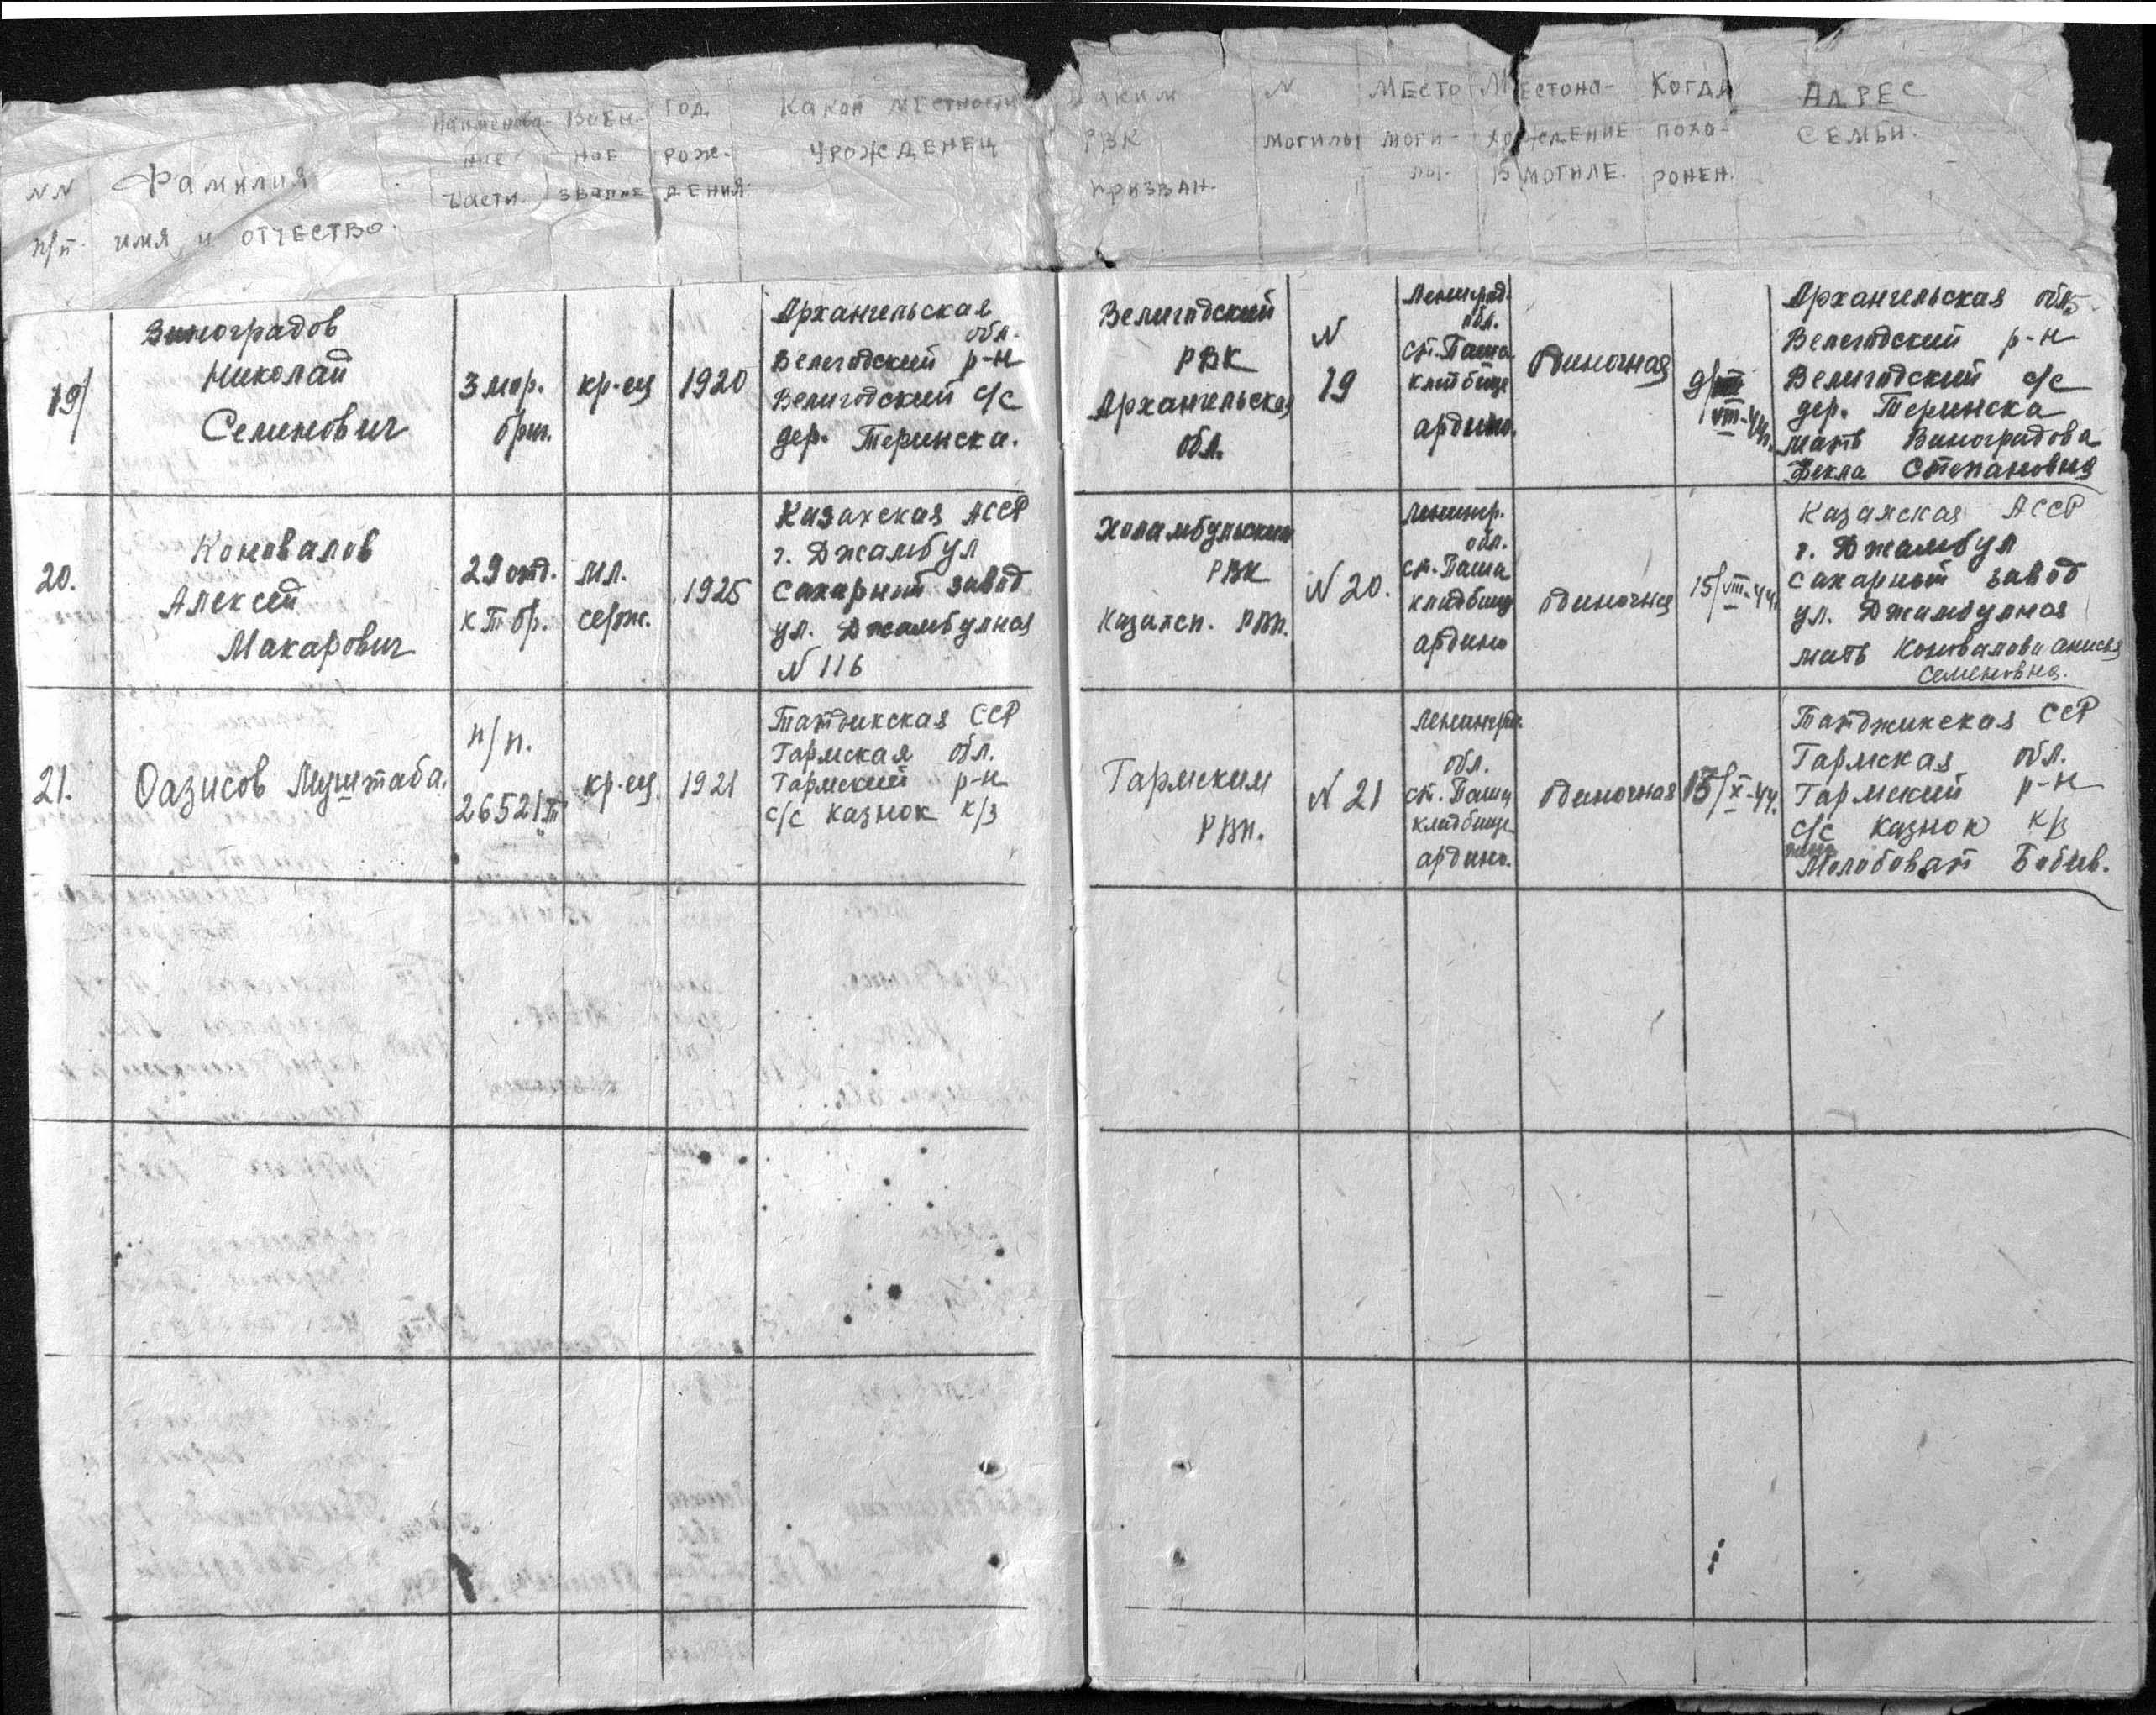 NN
п/п.
Фамилия
имя, и отчество.
Наименова-
ние
части.
Воен-
ное
звание
Год
рож-
дения
Какой местности
урожденец
Каким
РВК
призван.
N
могилы
Место
моги-
лы.
Местона-
хождение
в могиле.
Когда
похо-
ронен.
Адрес
семьи.
19/
Виноградов
Николай
Семенович
3 мор.
бриг.
кр-ец
1920
Архангельская
обл.
Велегодский р-н
Велигодский с/с
дер. Теринска.
Велигодский
РВК
Архангельская
обл.
N
19
Ленинград.
обл.
ст. Паша
кладбище
ардино.
Одиночная
9/
VIII-44г.
Архангельская обл.
Велегодский р-н
Велигодский с/с
дер. Теринска
мать Виноградова
Фекла Степановна
20.
Коновалов
Алексей
Макарович
29 отд.
кТбр.
мл.
серж.
1925
Казахская АССР
г. Джамбул
Сахарный завод
ул. Джамбулная
N 116
РВК
N 20.
Ленингр.
обл.
ст. Паша
кладбищ
ардино
одиночная
15/VIII-44г.
Казахская АССР
г. Джамбул
Сахарный завод
ул. Джамбулная
мать Коновалова Анисья
Семеновна.
21.
Оазисов Муштаба.
п/п.
26521
кр-ец.
1921
Гармская обл.
Гармский р-н
с/с Казнок к/з
Гармским
РВК.
N 21
обл.
ст. Паша
кладбище
ардино.
Одиночная
15/X-44г.
Таджикская ССР
Гармская обл.
Гармский р-н
с/с Казнок к/з